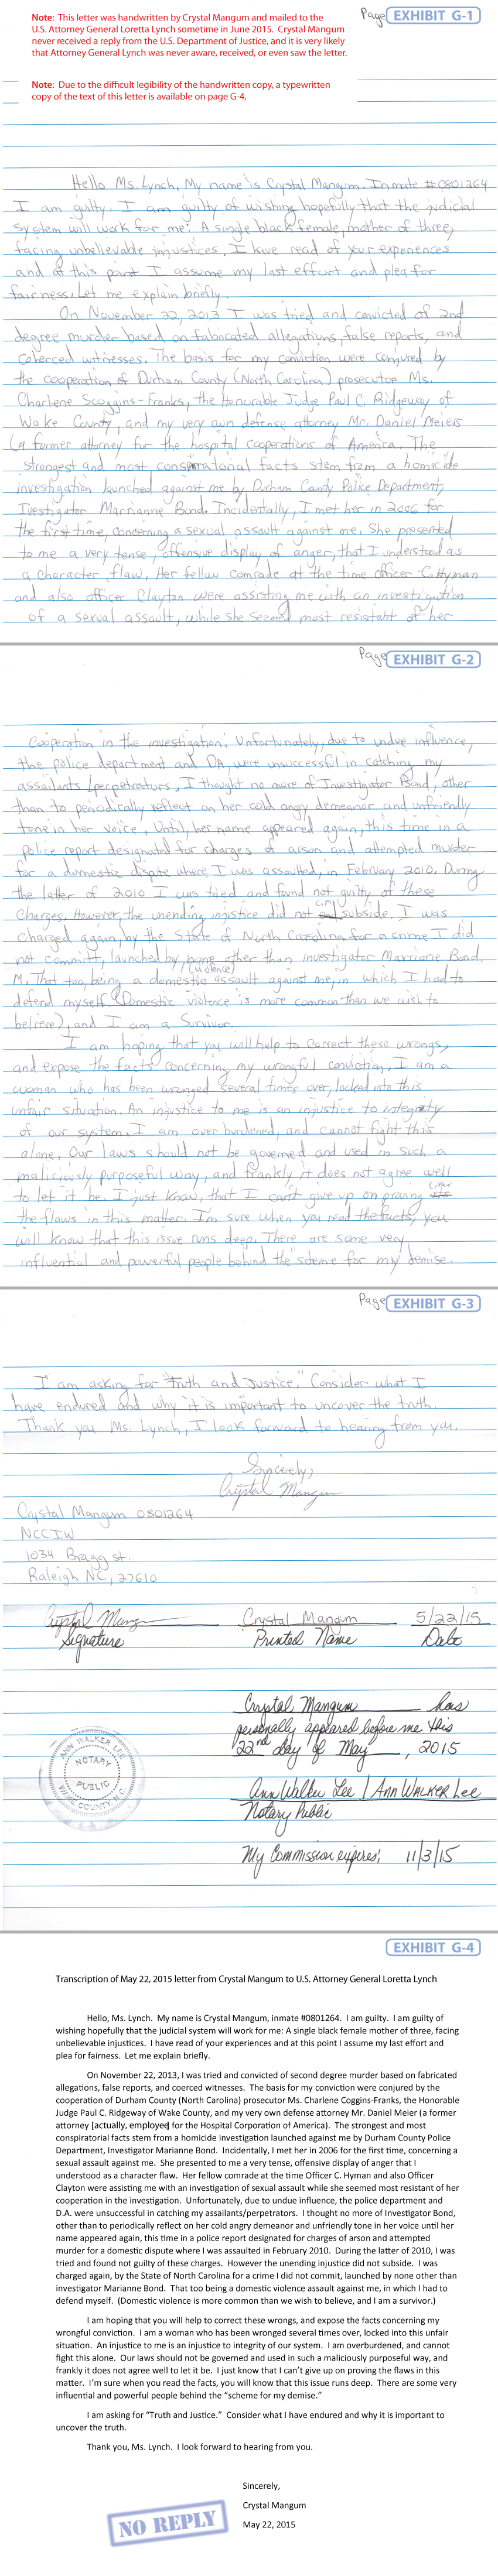 Note: This letter was handwritten by Crystal Mangum and mailed to the
U.S. Attorney General Loretta Lynch sometime in June 2015. Crystal Mangum
never received a reply from the U.S. Department of Justice, and it is very likely
that Attorney General Lynch was never aware, received, or even saw the letter.
Page EXHIBIT G-1
Note: Due to the difficult legibility of the handwritten copy, a typewritten
copy of the text of this letter is available on page G-4,
Hello Ms. Lynch, My name is Crystal Mangum. Inmate #0801264
I am guilty. I am guilty of wishing hopefully that the judicial
system will work for me: A single black female, mother of three,
facing unbelievable injustices. I have read of your experiences
and at this point I assume my last effort and plea for
fairness. Let me explain briefly.
On November 22, 2013 I was tried and convicted of 2nd
degree murder based on fabricated allegations, false reports, and
coherced witnesses. The basis for my conviction were conjured by
the cooperation of Durham County (North Carolina) prosecutor Ms.
Charlene Scoggins-Franks, the Honorable Judge Paul C. Ridgeway of
Wake County, and my very own defense attorney Mr. Daniel Meiers
(a former attorney for the hospital cooperations of America. The
strongest and most conspiratorial facts stem from a homicide
investigation launched against me by Durham County Police Department,
Ivestigator Marrianne Bond. Incidentally, I met her in 2006 for
the first time, concerning a sexual assault against me. She presented
to me a very tense, offensive display of anger, that I understood as
a character flaw. Her fellow comrade at the time officer C. Hyman
and also officer Clayton were assisting me with an investigation
of a sexual assault, while she seemed most resistant of her
Page EXHIBIT G-2
Cooperation in the investigation. Unfortunately, due to undue influence,
the police department and DA, were unsuccessful in catching my
assailants/perpetrators, I thought no more of Investigator Bond, other
than to periodically reflect on her cold angry demeanor and unfriendly
tone in her voice, Until, her name appeared again, this time in a
police report designated for charges of arson and attempted murder
for a domestic dispute where I was assaulted, in February 2010. During
the latter of 2010 I was tried and found not guilty of these
Charges. However, the unending injustice did not subside. I was
charged again, by the State of North Carolina for a crime I did
not committ, launched by none other than investigator Marrianne Bond.
M. That too, being a domestic (violence) assault against me, in which I had to
defend myself. (Domestic violence is more common than we wish to
believe), and I am a Survivor.
I am hoping that you will help to correct these wrongs,
and expose the facts concerning my wrongful conviction. I am a
woman who has been wronged several times over, locked into this
unfair situation. An injustice to me is an injustice to integrity
of our system. I am over burdened, and cannot fight this
alone, Our laws should not be governed and used in such a
maliciously purposeful way, and frankly it does not agree well
to let it be. I just know, that I can't give up on proving
the flaws in this matter. I'm sure when you read the facts, you
will know that this issue runs deep. There are some very
influential and powerful people behind the "scheme for my demise.
Page EXHIBIT G-3
I am asking for "Truth and Justice." Consider what I
have endured and why it is important to uncover the truth.
Thank you Ms. Lynch, I look forward to hearing from you.
Sincerely,
Crystal Mangum
Crystal Mangum 0801264
NCCIW
1034 Bragg st.
Raleigh NC, 27610
Crystal Mangum Crystal Mangum 5/22/15
Signature Printed Name Date
Crystal Mangum has
personally appeared before me this
22nd day of May, 2015
Ann Walker Lee / ANN WALKER LEE
Notary Public
My Commission expires: 11/3/15
ANN WALKER LEE
NOTARY
PUBLIC
WAKE COUNTY, N.C.
EXHIBIT G-4
Transcription of May 22, 2015 letter from Crystal Mangum to U.S. Attorney General Loretta Lynch
Hello, Ms. Lynch. My name is Crystal Mangum, inmate #0801264. I am guilty. I am guilty of
wishing hopefully that the judicial system will work for me: A single black female mother of three, facing
unbelievable injustices. I have read of your experiences and at this point I assume my last effort and
plea for fairness. Let me explain briefly.
On November 22, 2013, I was tried and convicted of second degree murder based on fabricated
allegations, false reports, and coerced witnesses. The basis for my conviction were conjured by the
cooperation of Durham County (North Carolina) prosecutor Ms. Charlene Coggins-Franks, the Honorable
Judge Paul C. Ridgeway of Wake County, and my very own defense attorney Mr. Daniel Meier (a former
attorney [actually, employed for the Hospital Corporation of America). The strongest and most
conspiratorial facts stem from a homicide investigation launched against me by Durham County Police
Department, Investigator Marianne Bond. Incidentally, I met her in 2006 for the first time, concerning a
sexual assault against me. She presented to me a very tense, offensive display of anger that I
understood as a character flaw. Her fellow comrade at the time Officer C. Hyman and also Officer
Clayton were assisting me with an investigation of sexual assault while she seemed most resistant of her
cooperation in the investigation. Unfortunately, due to undue influence, the police department and
D.A. were unsuccessful in catching my assailants/perpetrators. I thought no more of Investigator Bond,
other than to periodically reflect on her cold angry demeanor and unfriendly tone in her voice until her
name appeared again, this time in a police report designated for charges of arson and attempted
murder for a domestic dispute where I was assaulted in February 2010. During the latter of 2010, I was
tried and found not guilty of these charges. However the unending injustice did not subside. I was
charged again, by the State of North Carolina for a crime I did not commit, launched by none other than
investigator Marianne Bond. That too being a domestic violence assault against me, in which I had to
defend myself. (Domestic violence is more common than we wish to believe, and I am a survivor.)
I am hoping that you will help to correct these wrongs, and expose the facts concerning my
wrongful conviction. I am a woman who has been wronged several times over, locked into this unfair
situation. An injustice to me is an injustice to integrity of our system. I am overburdened, and cannot
fight this alone. Our laws should not be governed and used in such a maliciously purposeful way, and
frankly it does not agree well to let it be. I just know that I can't give up on proving the flaws in this
matter. I'm sure when you read the facts, you will know that this issue runs deep. There are some very
influential and powerful people behind the "scheme for my demise."
I am asking for "Truth and Justice." Consider what I have endured and why it is important to
uncover the truth.
Thank you, Ms. Lynch. I look forward to hearing from you.
Sincerely,
Crystal Mangum
May 22, 2015
NO REPLY